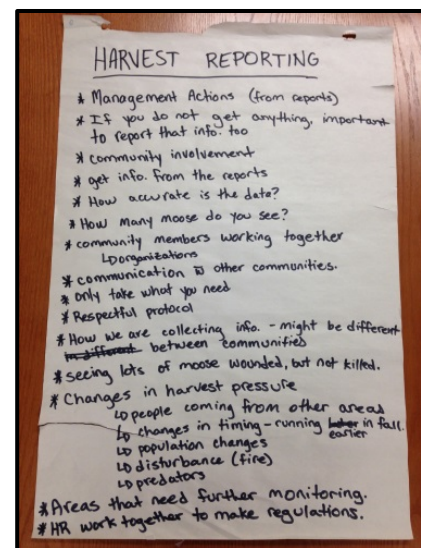 HARVEST REPORTING
* Management Actions (from reports)
* If you do not get anything, important
to report that info. too
* community involvement
* get info. from the reports
* How accurate is the date?
* How many moose do you see?
* community members working together
↳ organizations
* communication w other communities.
* only take what you need
* Respectful protocol
* How we are collecting info. - might be different
in different between communities
* seeing lots of moose wounded, but not killed.
* Changes in harvest pressure
↳ people coming from other areas
↳ changes in timing - running later in fall.
earlier
↳ population changes
↳ disturbance (fire)
↳ predators
* Areas that need further monitoring.
* HR work together to make regulations.